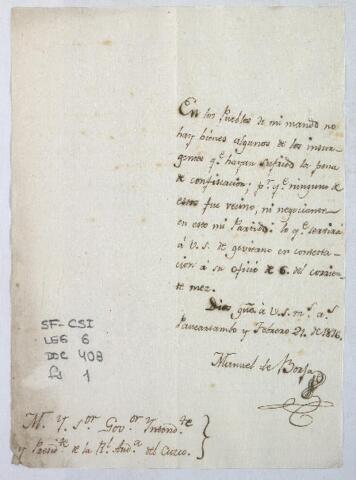 En los Pueblos de mi mando no
hay bienes algunos de los insur-
gentes q.e hayan sufrido la pena
de confiscacion; p.r q.e ninguno de
estos fue vecino, ni negociante
en este mi Partido. lo q.e servirá
á V.S. de govierno en contesta-
cion á su oficio de 6. del corrien-
te mez.
Dios gue. á V.S. m.s a.s
Paucartambo y Febrero 21. de 1816.
Manuel de Borja
SF-CSI
LEG 6
DOC 408
fs 1
M. Y. S.or Gov.or Yntend.te
y Presid.te de la R.l Aud.a del Cuzco.